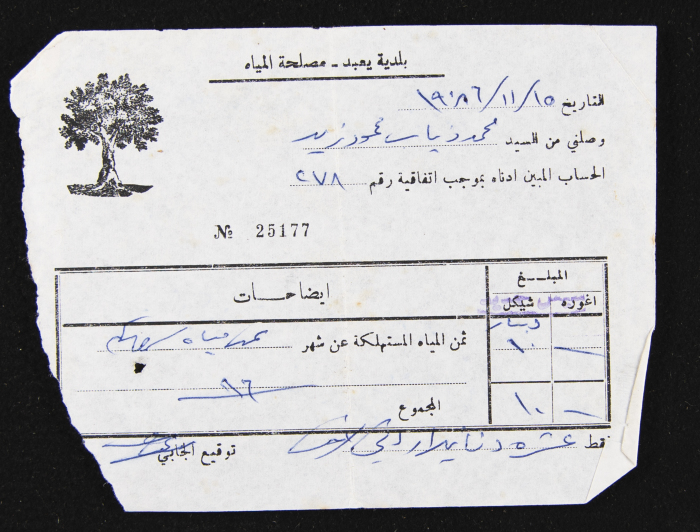 بلدية يعبد ـ مصلحة المياه
التاريخ ١٩٨٦/١١/١٥
وصلني من السيد محمد ذياب محمود زيد
الحساب المبين ادناه بموجب اتفاقية رقم ٢٧٨
№ 25177
المبلـــغ
اغوره شيكل ايضاحـــات
دينار
ـ ١٠ ثمن المياه المستهلكة عن شهر
١٦
ـ ١٠ المجموع
فقط عشرة دنانير اردني
توقيع الجابي